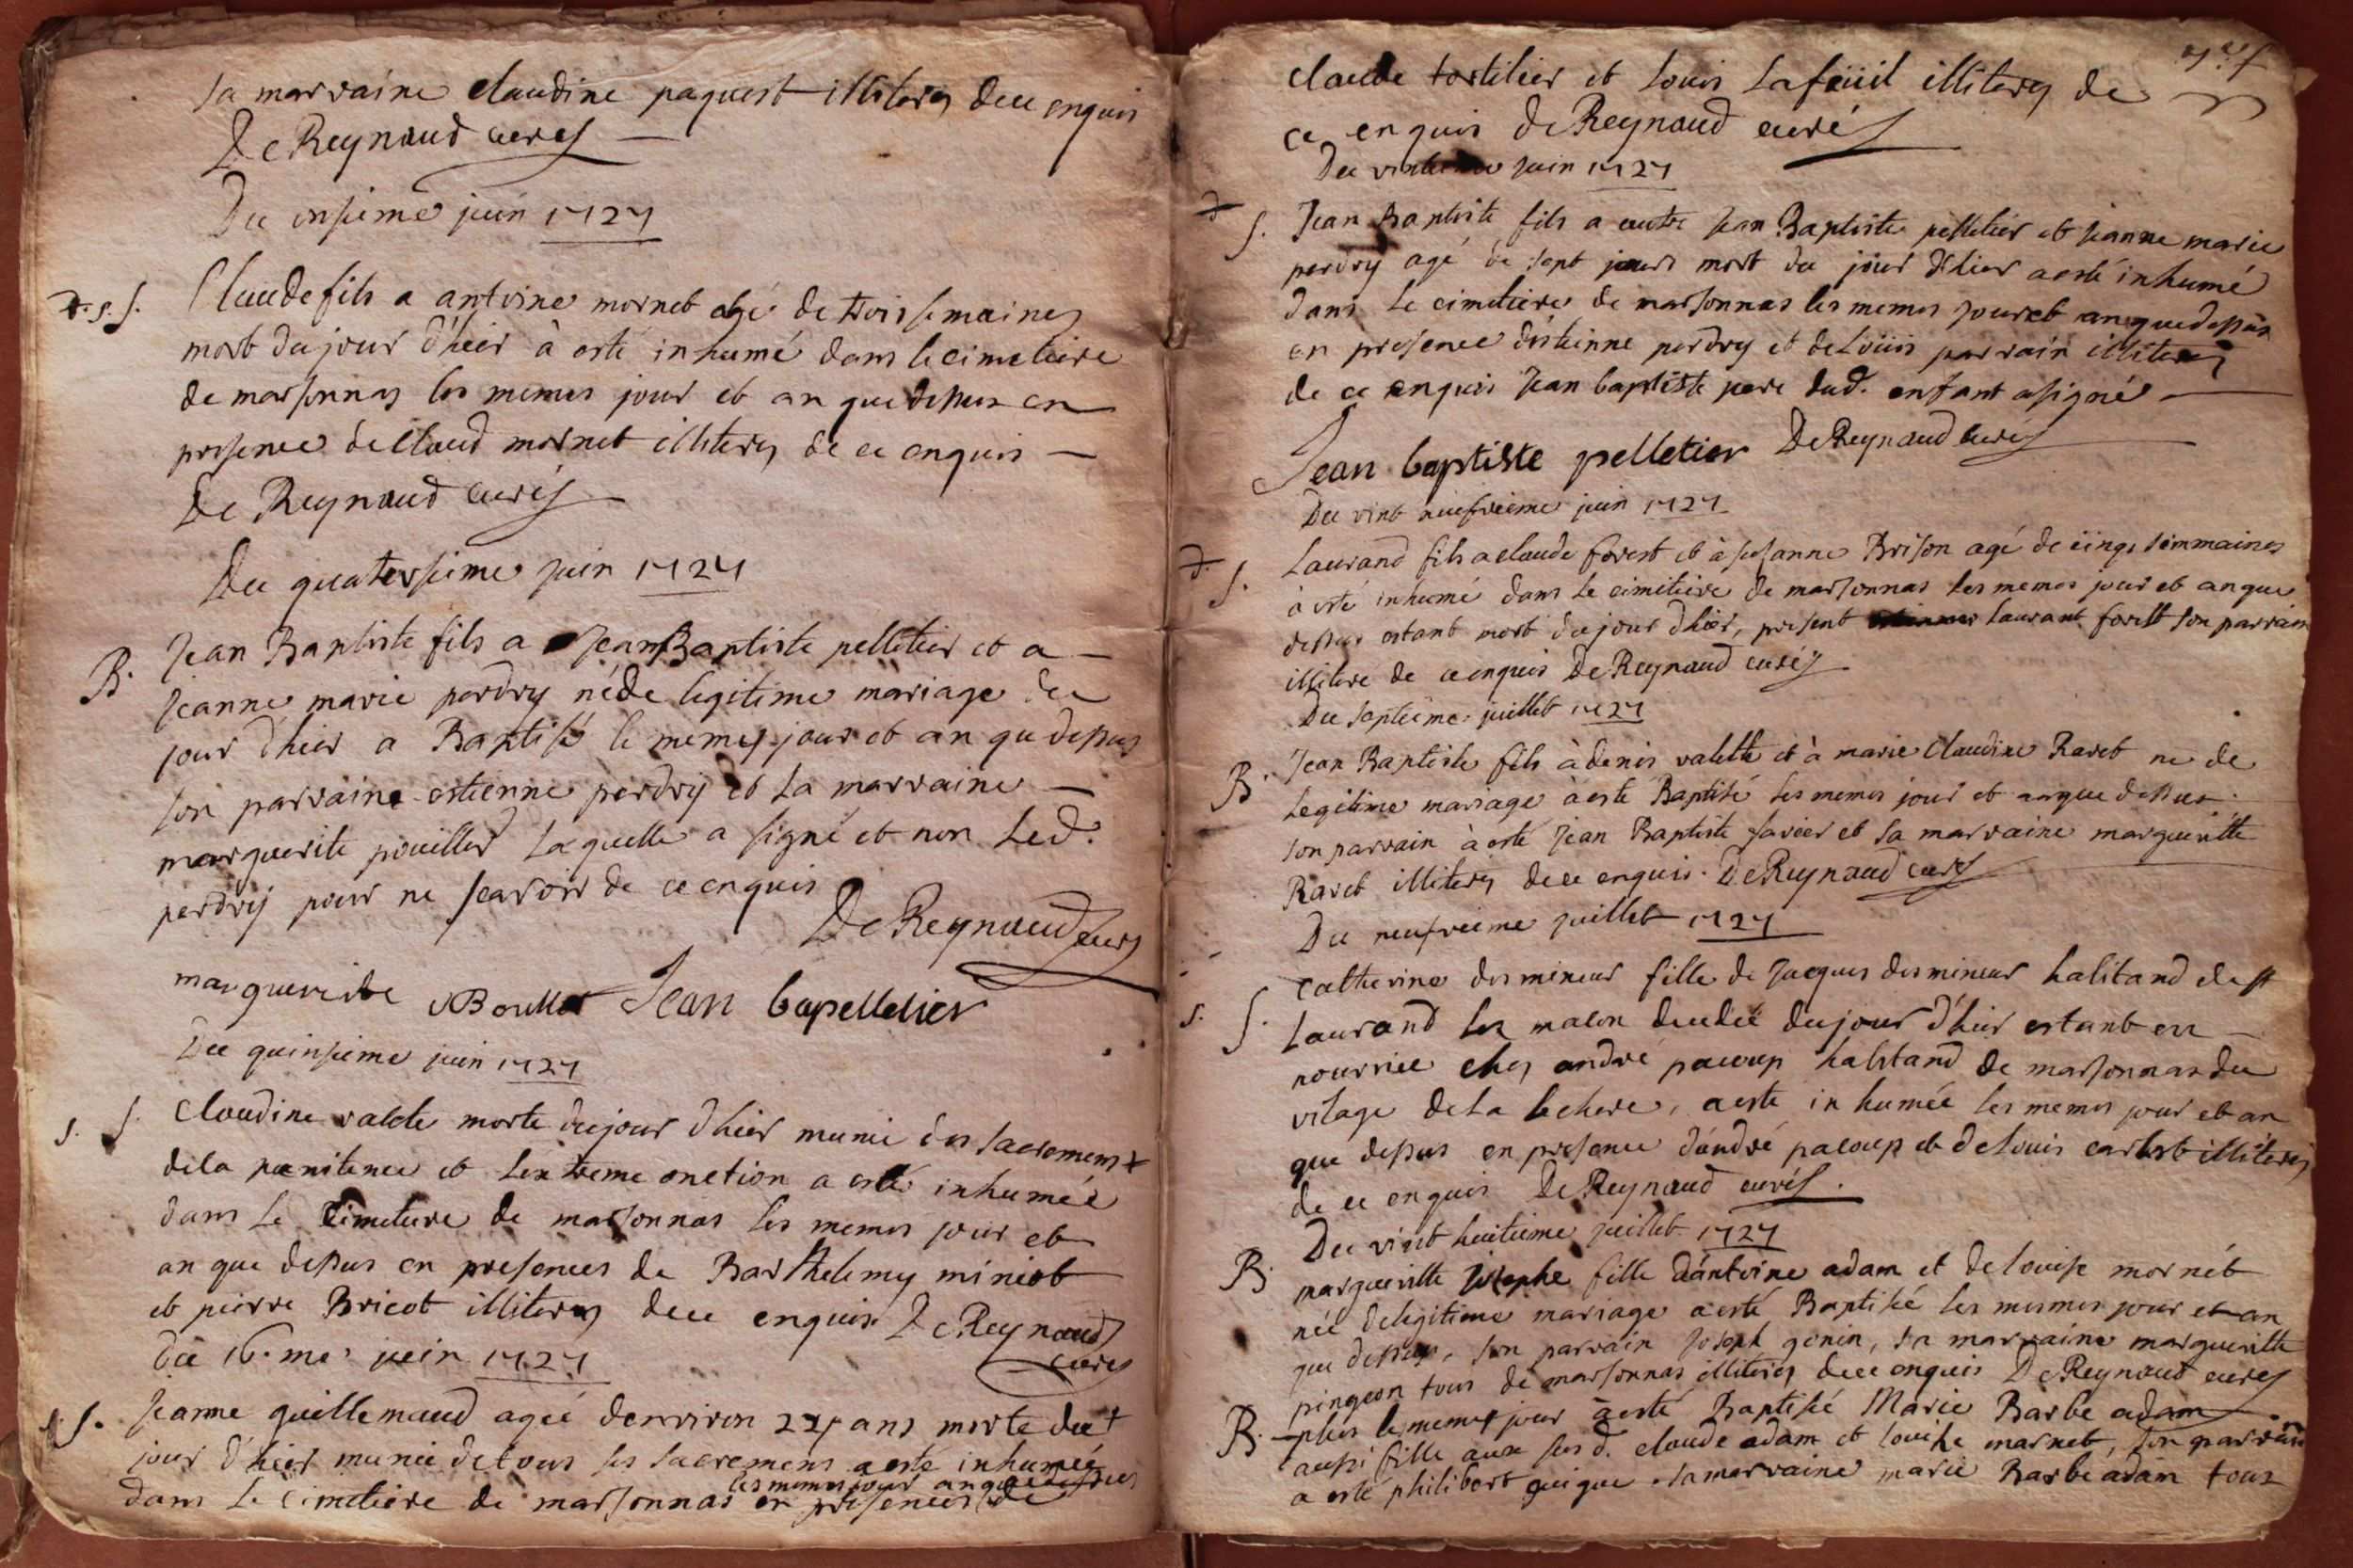 sa marraine claudine paquest illiteres de ce enquis
De Reynaud curé
Du onsieme juin 1727
d. s. S. Claude fils a antoine mornet agé de trois semaines
mort du jour d'hier à esté inhumé dans le cimetiere
de marsonnas les memes jour et an que dessus en
presence de Claud mornet illiteres de ce enquis
De Reynaud curé
Du quatorsieme juin 1727
B. Jean Baptiste fils a Jean Baptiste pelletier et a
Jeanne marie perdry né de legitime mariage du
jour d'hier a Baptisé le memes jour et an qu dessus
son parraine estienne perdry et sa marraine
marguerite pouillet laquelle a signé et non led.
perdry pour ne scavoir de ce enquis
De Reynaud curé
margueritte Boullet Jean bapelletier
Du quinsieme juin 1727
s. S. Claudine valete morte du jour d'hier munie des sacremens
de la penitence et lextreme onction a esté inhumée
dans le Cimetiere de marsonnas les memes jour et
an que dessus en presences de Barthelemy miniot
et pierre Bricot illiteres de ce enquis De Reynaud
curé
Du 16.me juin 1727
S. Jeanne guillemaud agée denviron 27 ans morte du
jour d'hier munie de tous ses sacremens a esté inhumée
les memes jour an que dessus
dans le Cimetiere de marsonnas en presences de
claude tortilier et Louis Lafeüil illiteres de
ce enquis De Reynaud curé
Du juin 1727
d. S. Jean Baptiste fils a Jean Baptiste pelletier et Jeanne marie
perdry agé de sept jours mort du jour d'hier a esté inhumé
dans le cimetiere de marsonnas les memes jour et an que dessus
en presence d'estienne perdry et de Loüis parrain illiteres
de ce enquis Jean baptiste pere dud. enfant a signé
Jean baptiste pelletier De Reynaud curé
Du vint neufvieme juin 1727
d. S. Laurand fils a claude forest et à susanne Brison agé de cinqs semmaines
à esté inhumé dans le cimitiere de marsonnas les memes jour et an que
dessus estant mort du jour d'hier, present laurant forest son parrain
illitere de ce enquis De Reynaud curé
Du septieme juillet 1727
B. Jean Baptiste fils à denis valette et à marie Claudine Ravet ne de
legitime mariage à esté Baptisé les memes jour et an que dessus
son parrain à esté Jean Baptiste et sa marraine margueritte
Ravet illiteres de ce enquis. De Reynaud curé
Du neufvieme juillet 1727
s. S. Catherine desmineur fille de Jacques desmineur habitand de st
Laurand les macon decedée du jour d'hier estant en
nourrice chez andré pacoup habitand de marsonnas du
vilage de la lechere, a esté inhumée les memes jour et an
que dessus en presence d'andré pacoup et de Louis carlest illiteres
de ce enquis De Reynaud curé.
Du vint huitieme juillet 1727
B. margueritte Josephe fille d'antoine adam et de Louise mornét
née de legitime mariage a esté Baptisé les mesmes jour et an
que dessus, son parrain Joseph gonin, sa marraine margueritte
pingeon tous de marsonnas illiteres de ce enquis De Reynaud curé
B. plus le memes jour à esté Baptisée Marie Barbe adam
aussi fille aux sus d. claude adam et Louise marnet, son parrain
a esté philibert guigue. sa marraine marie Barbe adam tous